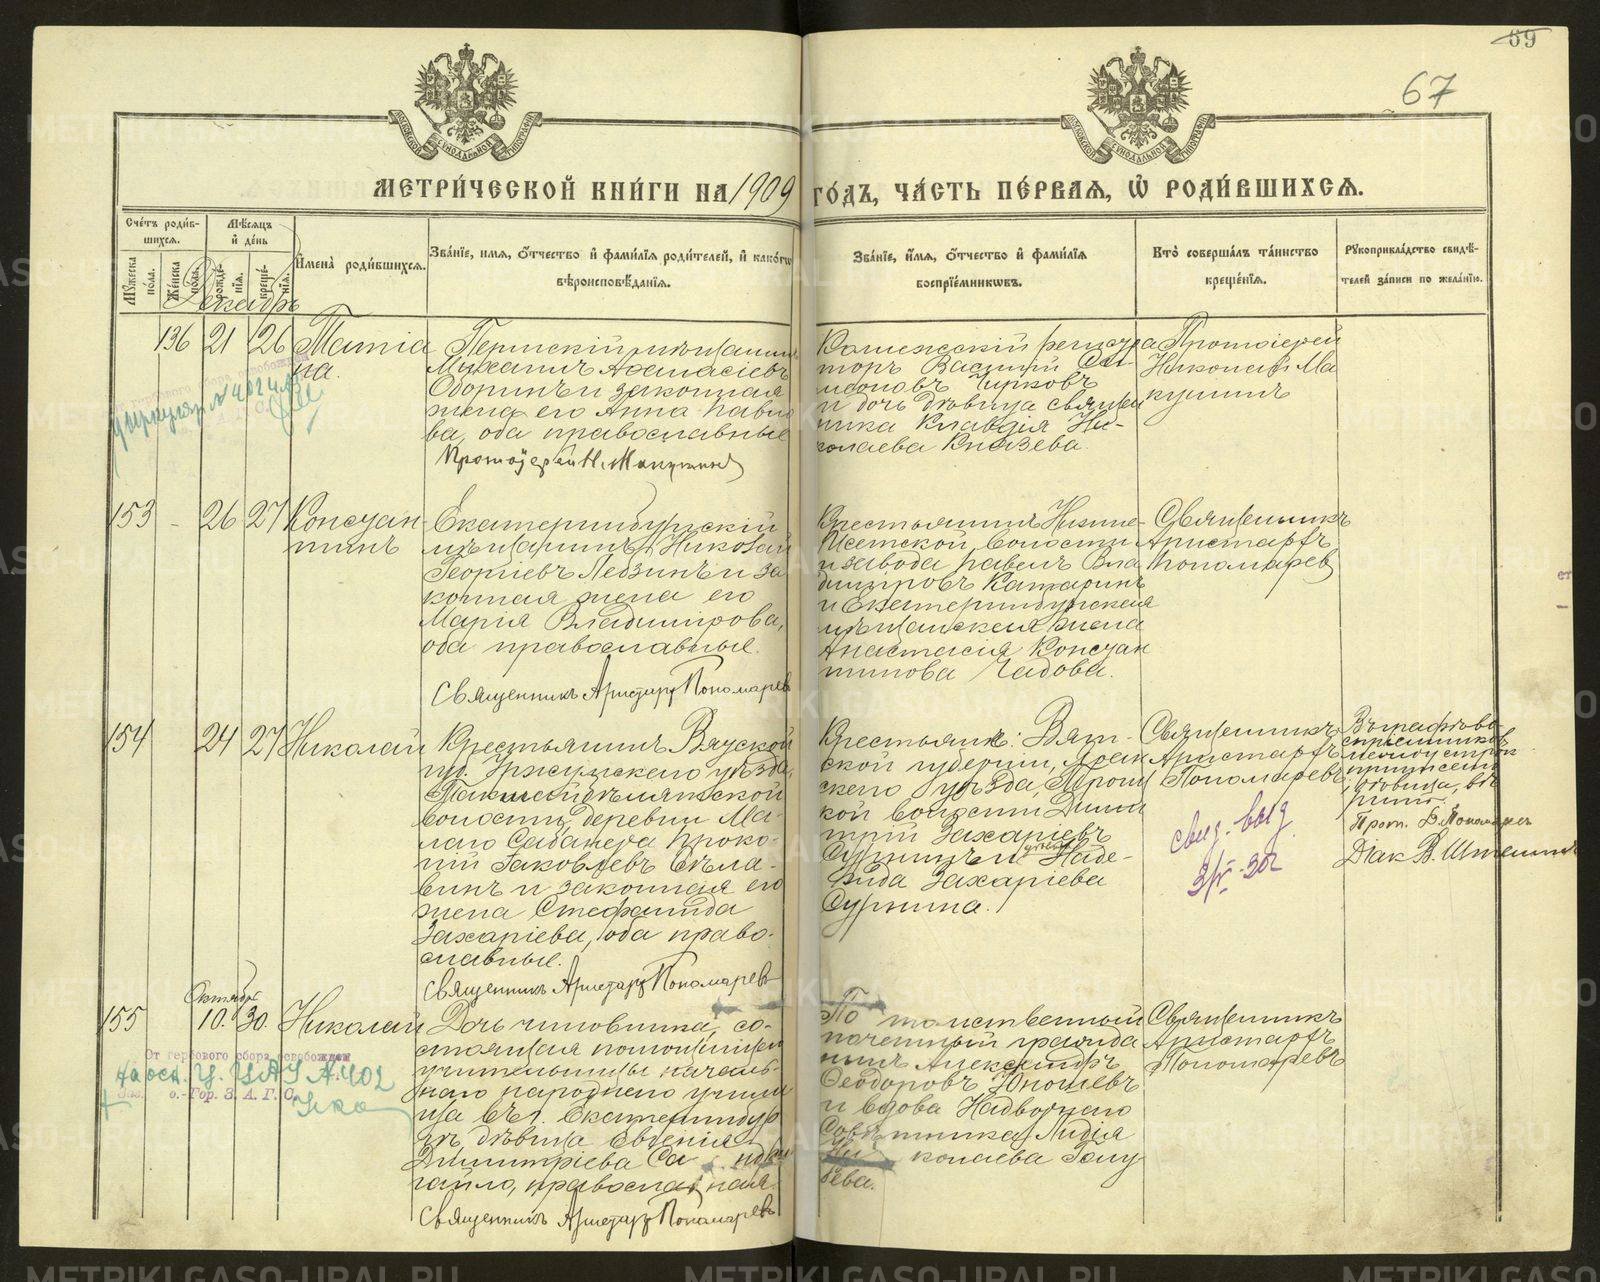 69
67
МЕТРИ́ЧЕСКОЙ КНИ́ГИ НА 1909 ГО́ДЪ, ЧА́СТЬ ПЕ́РВАЯ, Ѿ РОДИ́ВШИХСЯ.
Счётъ роди́вшихся.
Мѣсяцъ и день
Имена̀ роди́вшихся.
Зва́нїе, имя, о́тчество и фами́лїя роди́телей, и како́гѡ вѣроисповѣ́данїя.
Зва́нїе, и́мя, о́тчество и фами́лїя воспрїе́мникѡвъ.
Кто̀ соверша́лъ та́инство креще́нїя.
Рукоприкла́дство свидѣ́телей за́писи по жела́нїю.
Му́жеска по́ла.
Же́нска по́ла.
рожде́нїя.
креще́нїя.
Декабрь
136 21 26 Татіа
на.
Пермскій мѣщанинъ
Михаилъ Аѳанасіевъ
Оборинъ и законная
жена его Анна Павло
ва, оба православные
Протоіерей Н. Макушинъ
Коллежскій регистра
торъ Василій Си
меоновъ Чирковъ
и дочь дѣвица священ
ника Клавдія Ни-
колаева Князева.
Протоіерей
Николай Ма
кушинъ
153 - 26 27 Констан-
тинъ
Екатеринбургскій
мѣщанинъ Николай
Георгіевъ Лебзинъ и за
конная жена его
Марія Владимірова,
оба православные.
Священникъ Аристархъ Пономаревъ
Крестьянинъ Нижне-
Исетской волости
и завода Павелъ Вла
диміровъ Катаринъ
и Екатеринбургская
мѣщанская жена
Анастасія Констан
тинова Чадова.
Священникъ
Аристархъ
Пономаревъ
154 24 27 Николай
Крестьянинъ Вятской
губ. Уржумскаго уѣзда,
волости, деревни Ма-
лаго Сабанера Проко-
пій Іаковлевъ Бѣла-
винъ и законная его
жена Стефанида
Захаріева, оба право-
славные.
Священникъ Аристархъ Пономаревъ
Крестьяне: Вят-
ской губерніи, Яран
скаго уѣзда,
кой волости Дими
трій Захаріевъ
Сурнинъ и Наде-
жда Захаріева
Сурнина.
Священникъ
Аристархъ
Пономаревъ
свид. выд.
3/V-30г
Въ графѣ во-
спріемниковъ
между строкъ
приписано
"дѣвица", вѣ
рить.
Прот. В. Пономаревъ
Діак. В.
Октябрь
155 10. 30. Николай
Дочь чиновника, со-
стоящая помощницей
учительницы началь-
наго народнаго учили
ща въ г. Екатеринбур
гѣ дѣвица Евгенія
Димитріева
православная.
Священникъ Аристархъ Пономаревъ
Потомственный
почетный гражда
нинъ Александръ
Ѳеодоровъ Юношевъ
и вдова Надворнаго
Совѣтника Лидія
Николаева Голу
бева.
Священникъ
Аристархъ
Пономаревъ
От гербового сбора освобожден
на осн. Ц. ЦАУ №402
Гор. З.А.Г.С.
METRIKI.GASO-URAL.RU